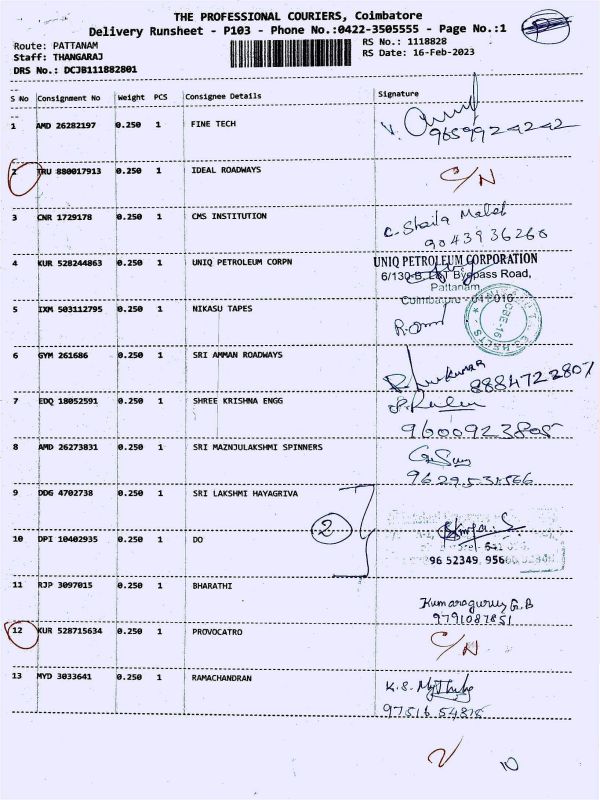 THE PROFESSIONAL COURIERS, Coimbatore
Delivery Runsheet - P103 - Phone No.:0422-3505555 - Page No.:1
Route: PATTANAM
RS No.: 1118828
Staff: THANGARAJ
RS Date: 16-Feb-2023
DRS No.: DCJB111882801
S No Consignment No Weight PCS Consignee Details Signature
1 AMD 26282197 0.250 1 FINE TECH
9659924242
2 TRU 880017913 0.250 1 IDEAL ROADWAYS C/N
3 CNR 1729178 0.250 1 CMS INSTITUTION C. Shaila
9043936260
4 KUR 528244863 0.250 1 UNIQ PETROLEUM CORPN UNIQ PETROLEUM CORPORATION
6/130-B, Bypass Road,
Pattanam,
Coimbatore
5 IXM 503112795 0.250 1 NIKASU TAPES
CBE-16
6 GYM 261686 0.250 1 SRI AMMAN ROADWAYS
8884722807
7 EDQ 18052591 0.250 1 SHREE KRISHNA ENGG
9600923805
8 AMD 26273831 0.250 1 SRI MAZNJULAKSHMI SPINNERS
9 DDG 4702738 0.250 1 SRI LAKSHMI HAYAGRIVA
2
10 DPI 10402935 0.250 1 DO
96 52349
11 RJP 3097015 0.250 1 BHARATHI
Kumaraguru G.B
9791087851
12 KUR 528715634 0.250 1 PROVOCATRO C/N
13 MYD 3033641 0.250 1 RAMACHANDRAN K.S.
97516 54815
2 10